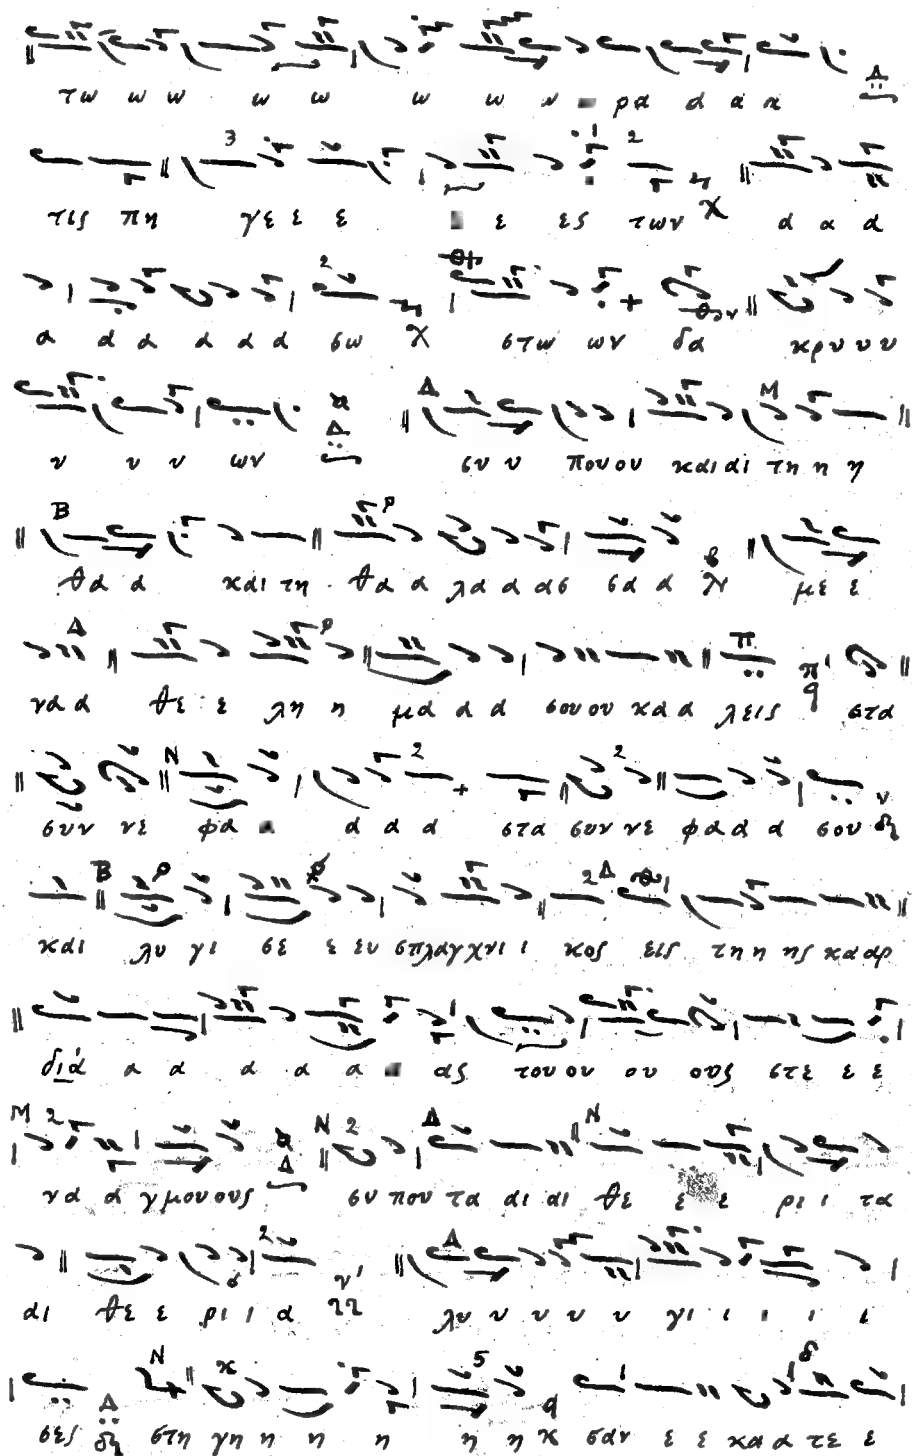 τω ω ω ω ω ω ω ν ρα α α α
τις πη γε ε ε ε ες των α α α
α α α α α α σω στω ων δα κρυ υ υ
υ υ υ ων συ υ που ου και αι τη η η
θα α και τη θα α λα α ασ σα α με ε
γα α θε ε λη η μα α α σου ου κα α λεις στα
συν νε φα α α α στα συν νε φα α α σου
και λυ γι σε ε ευ σπλαγχνι ι κος εις τη η ης κα αρ
διά α α α α α ας του ου ου ους στε ε ε
να α γμου ους συ που τα αι αι θε ε ε ρι ι τα
αι θε ε ρι ι α λυ υ υ υ υ γι ι ι ι ι
σες στη γη η η η η η κ σαν ε ε κα α τε ε